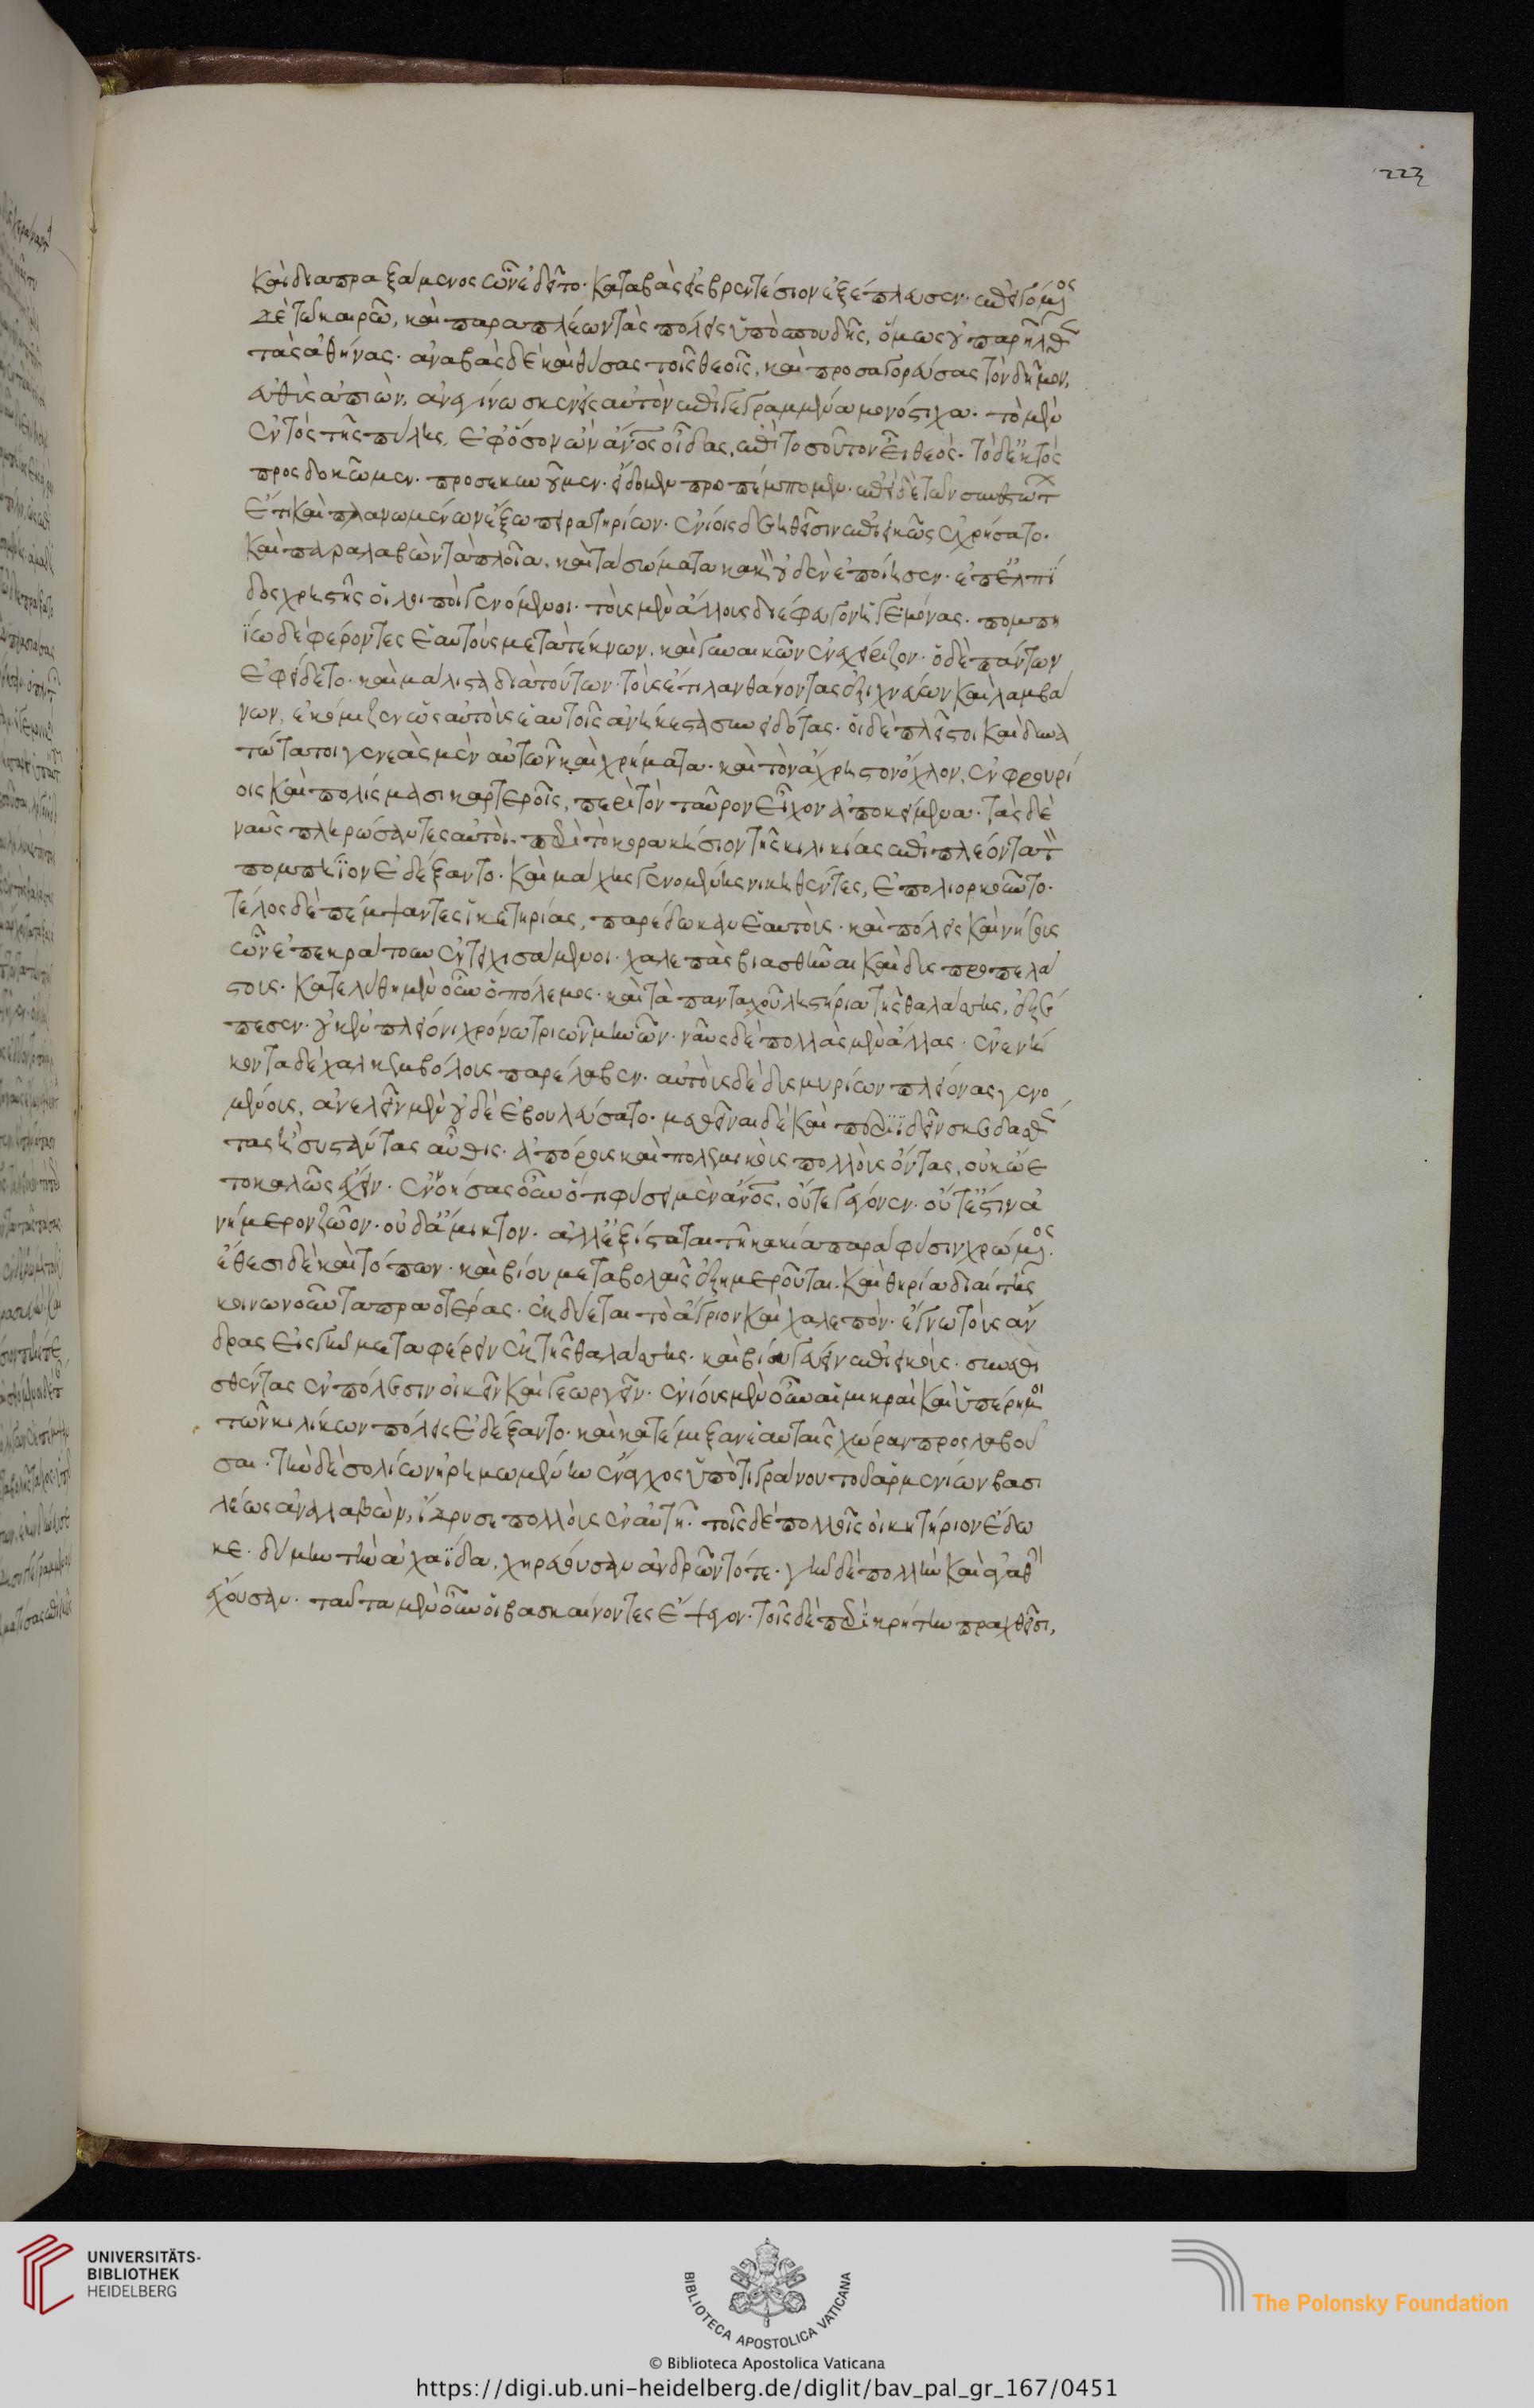 223
καὶ διαπραξάμενος ὧν ἐδεῖτο· καταβὰς εἰς βρεντέσιον ἐξέπλευσεν· ἐπειγόμενος
δὲ τῶ καιρῶ, καὶ παραπλέων τὰς πόλεις ὑπὸ σπουδῆς, ὅμως οὐ παρῆλθε
τὰς ἀθήνας· ἀναβὰς δὲ καὶ θύσας τοῖς θεοῖς, καὶ προσαγορεύσας τὸν δῆμον,
εὐθὺς ἀπιὼν, ἀνεγίνωσκεν εἰς αὐτὸν ἐπιγεγραμμένα μονόστιχα· τὸ μὲν
ἐντὸς τῆς πύλης, ἐφ' ὅσον ὢν ἄνος οἶδας, ἐπὶ τοσοῦτον εἶ θεός· τὸ δ' ἐκτὸς
προσδοκῶμεν· προσεκυνοῦμεν· εἴδομεν προπέμπομεν· ἐπεὶ δὲ τῶν συνεστώτων
ἔτι καὶ πλανωμένων ἔξω πειρατηρίων· ἐνίοις δεηθεῖσιν ἐπιεικῶς ἐχρήσατο·
καὶ παραλαβὼν τὰ πλοῖα, καὶ τὰ σώματα κακὸν οὐδὲν ἐποίησεν· ἐπ' ἐλπί
δος χρηστῆς οἱ λοιποὶ γενόμενοι· τοὺς μὲν ἄλλους διέφευγον ἡγεμόνας· πομπη
ίω δὲ φέροντες ἑαυτοὺς μετὰ τέκνων, καὶ γυναικῶν ἐνεχείριζον· ὁ δὲ πάντων
ἐφείδετο· καὶ μάλιστα διὰ τούτων· τοὺς ἔτι λανθάνοντας ἐξιχνεύων καὶ λαμβά
νων, ἐκόμιζεν ὡς αὐτοὺς ἑαυτοῖς ἀνήκεστα συνειδότας· οἱ δὲ πλεῖστοι καὶ δυνα
τώτατοι γενεὰς μὲν αὐτῶν καὶ χρήματα· καὶ τὸν ἄχρηστον ὄχλον, ἐν φρουρί
οις καὶ πολίσμασι καρτεροῖς, περὶ τὸν ταῦρον εἶχον ἀποκείμενα· τὰς δὲ
ναῦς πληρώσαντες αὐτοὶ· περὶ τὸ κορακήσιον τῆς κιλικίας ἐπιπλέοντα τὸν
πομπήϊον ἐδέξαντο· καὶ μάχης γενομένης νικηθέντες, ἐπολιορκοῦντο·
τέλος δὲ πέμψαντες ἱκετηρίας, παρέδωκαν ἑαυτοὺς· καὶ πόλεις καὶ νήσους
ὧν ἐπεκράτουν ἐντειχισάμενοι· χαλεπὰς βιασθῆναι καὶ δυσπροσπελά
στους· κατελύθη μὲν οὖν ὁ πόλεμος· καὶ τὰ πανταχοῦ ληστήρια τῆς θαλάσσης, ἐξέ
πεσεν· οὐκ ἐν πλείονι χρόνω τριῶν μηνῶν· ναῦς δὲ πολλὰς μὲν ἄλλας· ἐνενή
κοντα δὲ χαλκεμβόλους παρέλαβεν· αὐτοὺς δὲ δισμυρίων πλείονας γενο
μένους, ἀνελεῖν μὲν οὐδὲ ἐβουλεύσατο· μεθεῖναι δὲ καὶ περιϊδεῖν σκεδασθέν
τας ἢ συστάντας αὖθις· ἀπόρους καὶ πολεμικοὺς πολλοὺς ὄντας, οὐκ ὤε
το καλῶς ἔχειν· ἐννοήσας οὖν ὅτι φύσει μὲν ἄνος, οὔτε γέγονεν· οὔτ' ἔστιν ἀ
νήμερον ζῶον· οὐδ' ἄμικτον· ἀλλ' ἐξίσταται τῆ κακία παρὰ φύσιν χρώμενος·
ἔθεσι δὲ καὶ τόπων· καὶ βίου μεταβολαῖς ἐξημεροῦται· καὶ θηρία διαίτης
κοινωνοῦντα πραοτέρας· ἐκδύεται τὸ ἄγριον καὶ χαλεπὸν· ἔγνω τοὺς ἄν
δρας εἰς γῆν μεταφέρειν ἐκ τῆς θαλάσσης· καὶ βίου γεύειν ἐπιεικοῦς· συνεθι
σθέντας ἐν πόλεσιν οἰκεῖν καὶ γεωργεῖν· ἐνίους μὲν οὖν αἱ μικραὶ καὶ ὑπέρημοι
τῶν κιλίκων πόλεις ἐδέξαντο· καὶ κατέμιξαν ἑαυταῖς χώραν προσλαβοῦ
σαι· τὴν δὲ σολίων ἠρημωμένην ἔναγχος ὑπὸ τιγράνου τοῦ ἀρμενίων βασι
λέως ἀναλαβὼν, ἵδρυσε πολλοὺς ἐν αὐτῆ· τοῖς δὲ πολλοῖς οἰκητήριον ἔδω
κε· δύμην τὴν ἀχαΐδα, χηρεύουσαν ἀνδρῶν τότε· γῆν δὲ πολλὴν καὶ ἀγαθὴν
ἔχουσαν· ταῦτα μὲν οὖν οἱ βασκαίνοντες ἔψεγον· τοῖς δὲ περὶ κρήτην πραχθεῖσι,
UNIVERSITÄTS-
BIBLIOTHEK
HEIDELBERG
BIBLIOTECA APOSTOLICA VATICANA
The Polonsky Foundation
© Biblioteca Apostolica Vaticana
https://digi.ub.uni-heidelberg.de/diglit/bav_pal_gr_167/0451